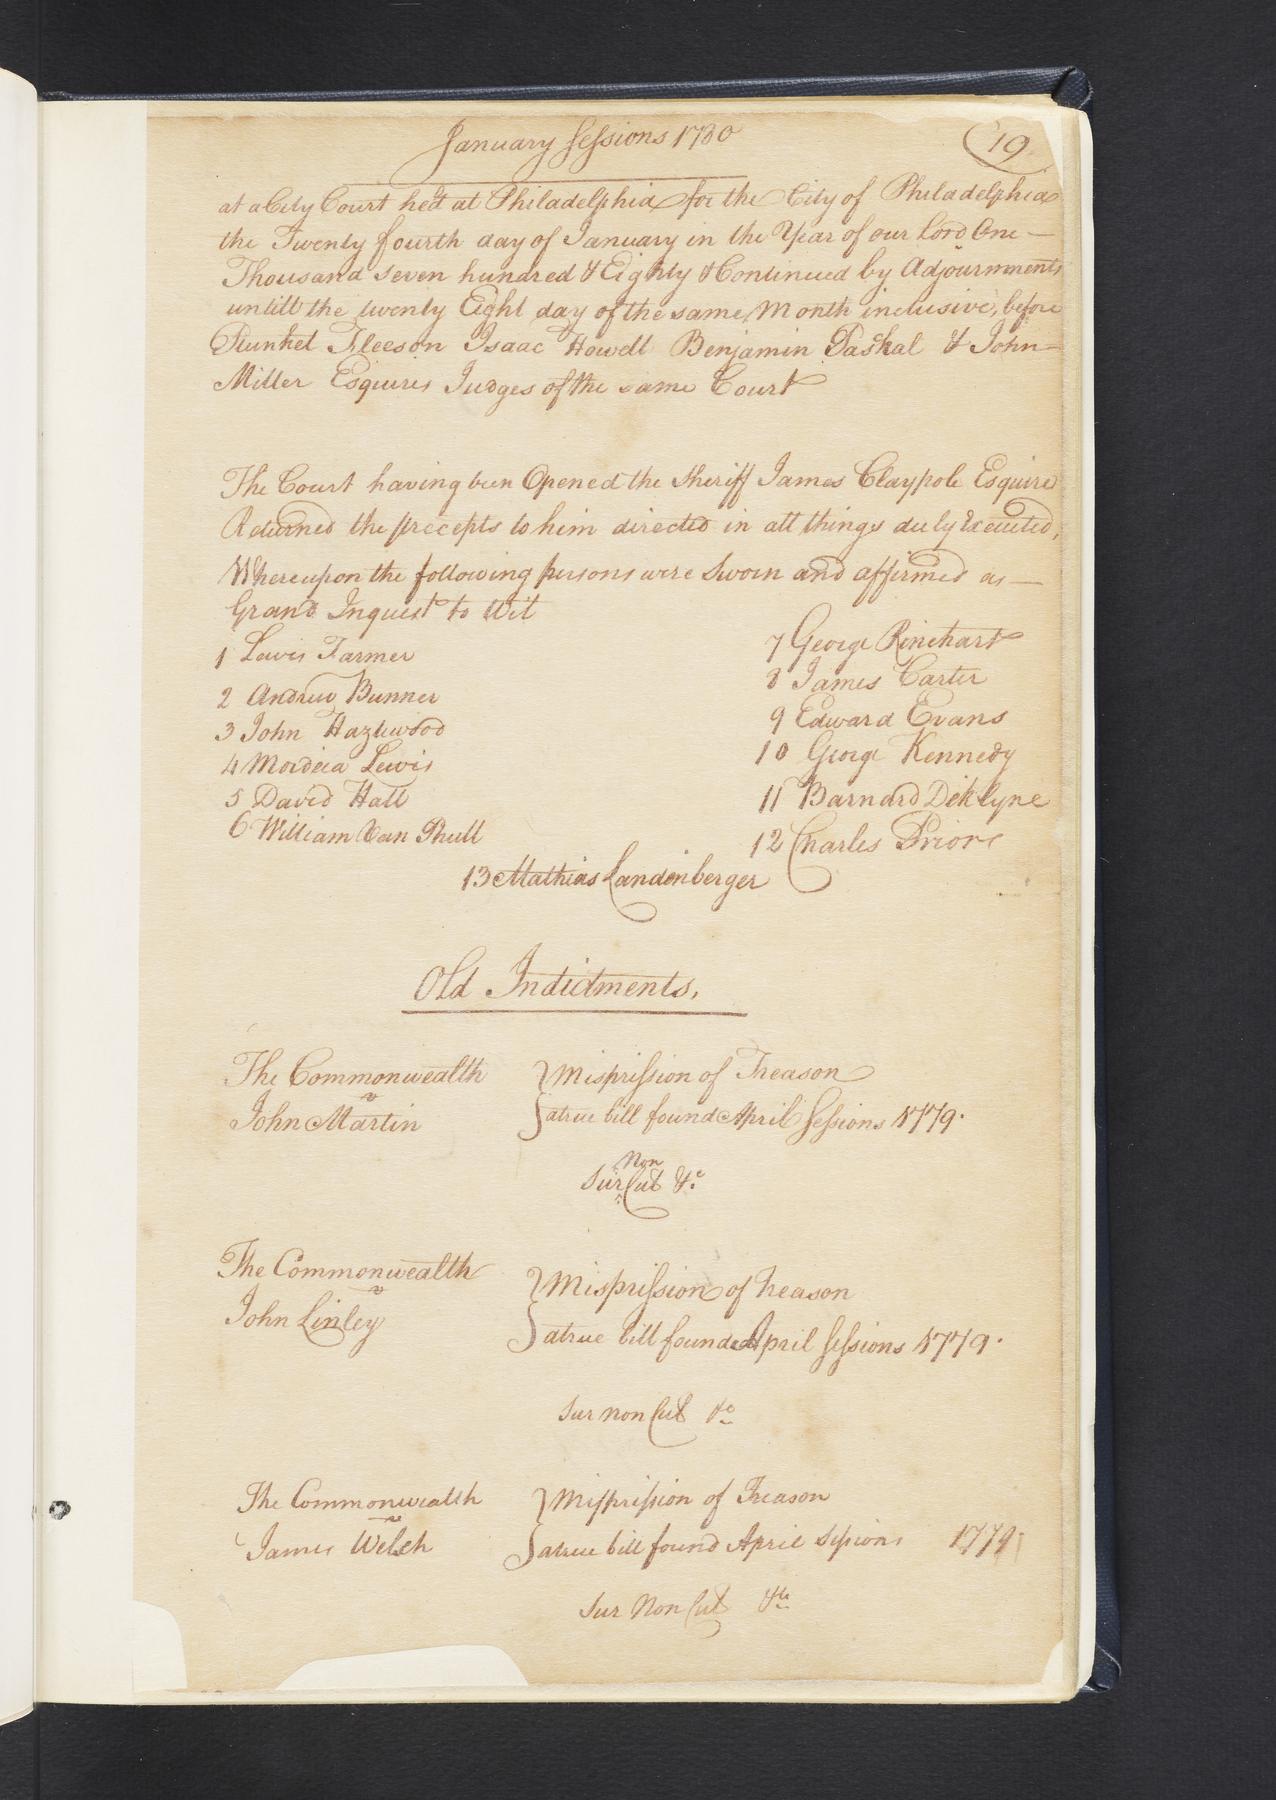 January Sessions 1780
19
at a City Court held at Philadelphia for the City of Philadelphia
the Twenty fourth day of January in the Year of our Lord One —
Thousand seven hundred & Eighty & Continued by Adjournments
untill the twenty Eight day of the same Month inclusive, before
Plunket Fleeson Isaac Howell Benjamin Paskal & John —
Miller Esquires Judges of the same Court
The Court having been Opened the Sheriff James Claypole Esquire
Returned the precepts to him directed in all things duly Executed,
Whereupon the following persons were Sworn and affirmed as —
Grand Inquest to Wit
1 Lewis Farmer
2 Andrew Bunner
3 John Hazlewood
4 Mordeca Lewis
5 David Hall
6 William Van Phull
7 George Rinehart
8 James Carter
9 Edward Evans
10 George Kennedy
11 Barnard Deklyne
12 Charles Priore
13 Mathias Landenberger
Old Indictments,
The Commonwealth } Misprission of Treason
v
John Martin } a true bill found April Sessions 1779.
Non
Sur ^ Cul &c
The Commonwealth } Misprission of Treason
v
John Linley } a true bill found April Sessions 1779.
Sur non Cul &c
The Commonwealth } Misprission of Treason
v
James Welsh } a true bill found April Sessions 1779
Sur Non Cul &c